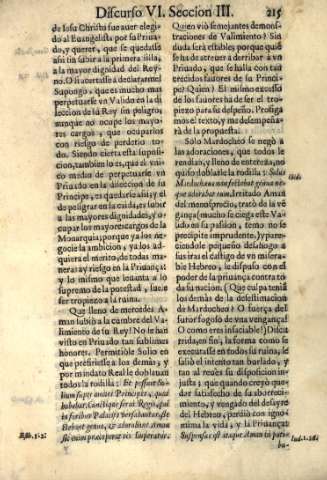 Discurso VI. Seccion III. 215
de Iesu Christo fue auer elegi-
do al Euangelista por su Priua-
do, y querer, que se quedasse
assi sin subir a la primera silla,
a la mayor dignidad del Rey-
no. O si acertasse a declararme!
Supongo, que es mucho mas
perpetuarse vn Valido en la di-
reccion de su Rey sin peligro,
aunque no ocupe los mayo-
res cargos, que ocuparlos
con riesgo de perderlo to-
do. Siendo cierta esta suposi-
cion, tambien lo es, que el vni-
co medio de perpetuarse vn
Priuado en la direccion de su
Principe, es quedarse assi; y el
de peligrar en la caida, es subir
a las mayores dignidades, y o-
cupar los mayores cargos de la
Monarquia; porque ya los ne-
gocie la ambicion, y ya los ad-
quiera el merito, de todas mane-
ras ay riesgo en la Priuança:
y lo mismo que leuanta a lo
supremo de la potestad, suele
ser tropiezo a la ruina.
Que lleno de mercedes A-
man subiò a la cumbre del Va-
limiento de su Rey! No le han
visto en Priuado tan sublimes
honores. Permitiòle Solio en
que presidiesse a los demàs, y
por mandato Real le doblauan
todos la rodilla: Et posuit So-
lium super omnes Principes, quos
habebat, cunctique serui Regis, qui
in foribus Palatij versabantur, fle-
ctebant genua, & adorabant Aman
sic enim præceperat eis Imperator.
Esth. 3. 2.
Quien viò semejantes demons-
traciones de Valimiento? Sin
duda serà estable; porque quiè
se ha de atreuer a derribar a vn
Priuado, que se halla con tan
crecidos fauores de su Princi-
pe? Quien? El mismo excesso
de los fauores ha de ser el tro-
piezo para su despeño. Prosiga
mos el texto, y me desempeña-
rà de la propuesta.
Solo Mardocheo se negò a
las adoraciones, que todos le
rendian, y lleno de entereza, no
quiso doblarle la rodilla: Solus
Mardochæus non flectebat genu, ne-
que adorabat eum. Irritado Aman
del menosprecio, tratò de la vé-
gança (mucho se ciega este Vali-
do en su passion, temo no se
precipite imprudente,) y parecien-
dole pequeño desahogo a
sus iras el castigo de vn misera-
ble Hebreo, le dispuso con el
poder de la priuança contra to-
da su nacion. (Que culpa tenià
los demàs de la desestimacion
de Mardocheo? O fuerça del
furor fogoso de vna vengança!
O como eres insaciable!) Discu-
rrida, en fin, la forma como se
executasse en todos su ruina, se
saliò el intento tan burlado, y
tan al reuès su disposicion in-
justa; que quando creyò que-
dar satisfecho de su aborreci-
miento, y vengado del desayre
del Hebreo, perdiò con igno-
minia la vida, y la Priuança:
Suspensus est itaque Aman in pati
bu-
Ibid.